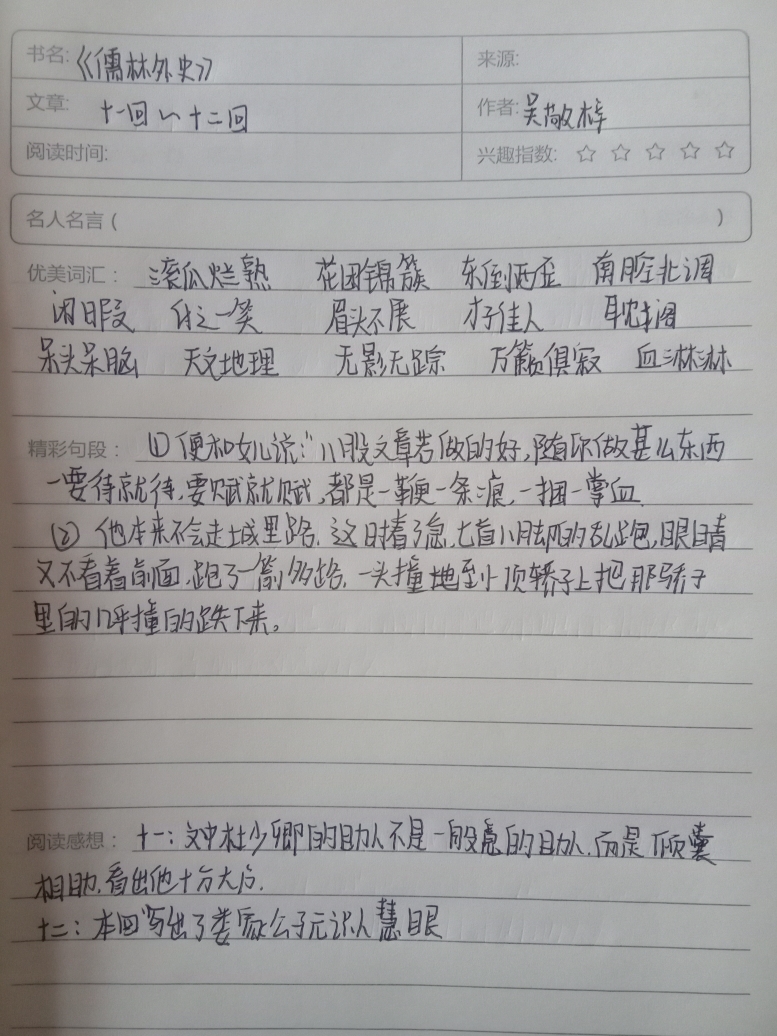 书名: 《儒林外史》 来源:
文章: 十一回~十二回 作者: 吴敬梓
阅读时间: 兴趣指数: ☆ ☆ ☆ ☆ ☆
名人名言 ( )
优美词汇: 滚瓜烂熟 花团锦簇 东倒西歪 南腔北调
闲暇 付之一笑 眉头不展 才子佳人 耽搁
呆头呆脑 天文地理 无影无踪 万籁俱寂 血淋淋
精彩句段: ①便和女儿说:"八股文章若做的好,随你做甚么东西
要待就待,要赋就赋,都是一鞭一条痕,一掴一掌血
② 他本来不会走城里路,这时着了急,七首八脚的乱跑,眼睛
又不看着前面,跑了一箭多路,一头撞地至小顶轿子上把那轿子
里的几乎撞的跌下来。
阅读感想: 十一:文中杜少卿的助人不是一般意的助人,而是倾囊
相助,看出他十分大方.
十二:本回写出了娄家公子无识人慧眼